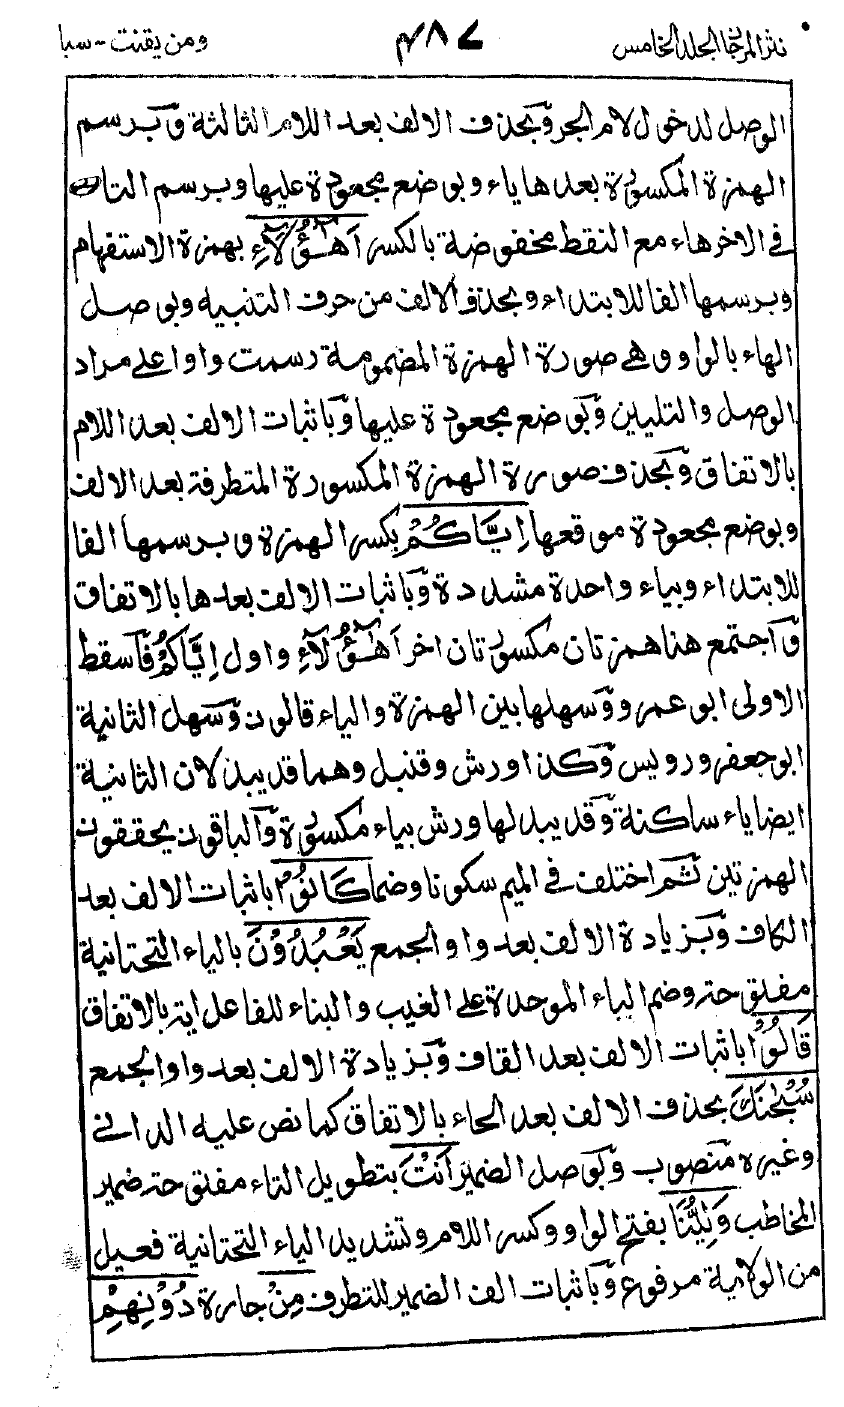 نثر المرجان الجلد الخامس ٤٨٧ ومن يقنت - سبا
الوصل لدخول لام الجر وَبحذف الالف بعد اللام الثالثة وَبرسم
الهمزة المكسورة بعدها ياء وبوضع مجعودة عليها وبرسم التاء
في الاخر هاء مع النقط مخفوضة بالكسر اَهٰٓؤُلَآءِ بهمزة الاستفهام
وبرسمها الفا للابتداء وبحذف الالف من حرف التنبيه وبوصل
الهاء بالواو وهي صورة الهمزة المضمومة رسمت واوا على مراد
الوصل والتليين وَبوضع مجعودة عليها وَباثبات الالف بعد اللام
بالاتفاق وَبحذف صورة الهمزة المكسورة المتطرفة بعد الالف
وبوضع مجعودة موقعها اِيَّاكُمْ بكسر الهمزة وبرسمها الفا
للابتداء وبياء واحدة مشددة وَباثبات الالف بعدها بالاتفاق
وَاجتمع هنا همزتان مكسورتان اخر اَهٰٓؤُلَآءِ واول اِيَّاكُمْ فَاسقط
الاولى ابو عمرو وَسهلها بين الهمزة والياء قالون وَسهل الثانية
ابو جعفر ورويس وَكذا ورش وقنبل وهما قد يبدلان الثانية
ايضا ياء ساكنة وَقد يبدلها ورش بياء مكسورة وَالباقون يحققون
الهمزتين ثم اختلف في الميم سكونا وضما كَانُوْا باثبات الالف بعد
الكاف وَبزيادة الالف بعد واو الجمع يَعْبُدُوْنَ بالياء التحتانية
مفتوحة وضم الباء الموحدة على الغيب والبناء للفاعل اية بالاتفاق
قَالُوْا باثبات الالف بعد القاف وَبزيادة الالف بعد واو الجمع
سُبْحٰنَكَ بحذف الالف بعد الحاء بالاتفاق كما نص عليه الداني
وغيره منصوب وَبوصل الضمير اَنْتَ بتطويل التاء مفتوحة ضمير
المخاطب وَلِيُّنَا بفتح الواو وكسر اللام وتشديد الياء التحتانية فعيل
من الولاية مرفوع وَباثبات الف الضمير للتطرف مِنْ جارة دُوْنِهِمْ